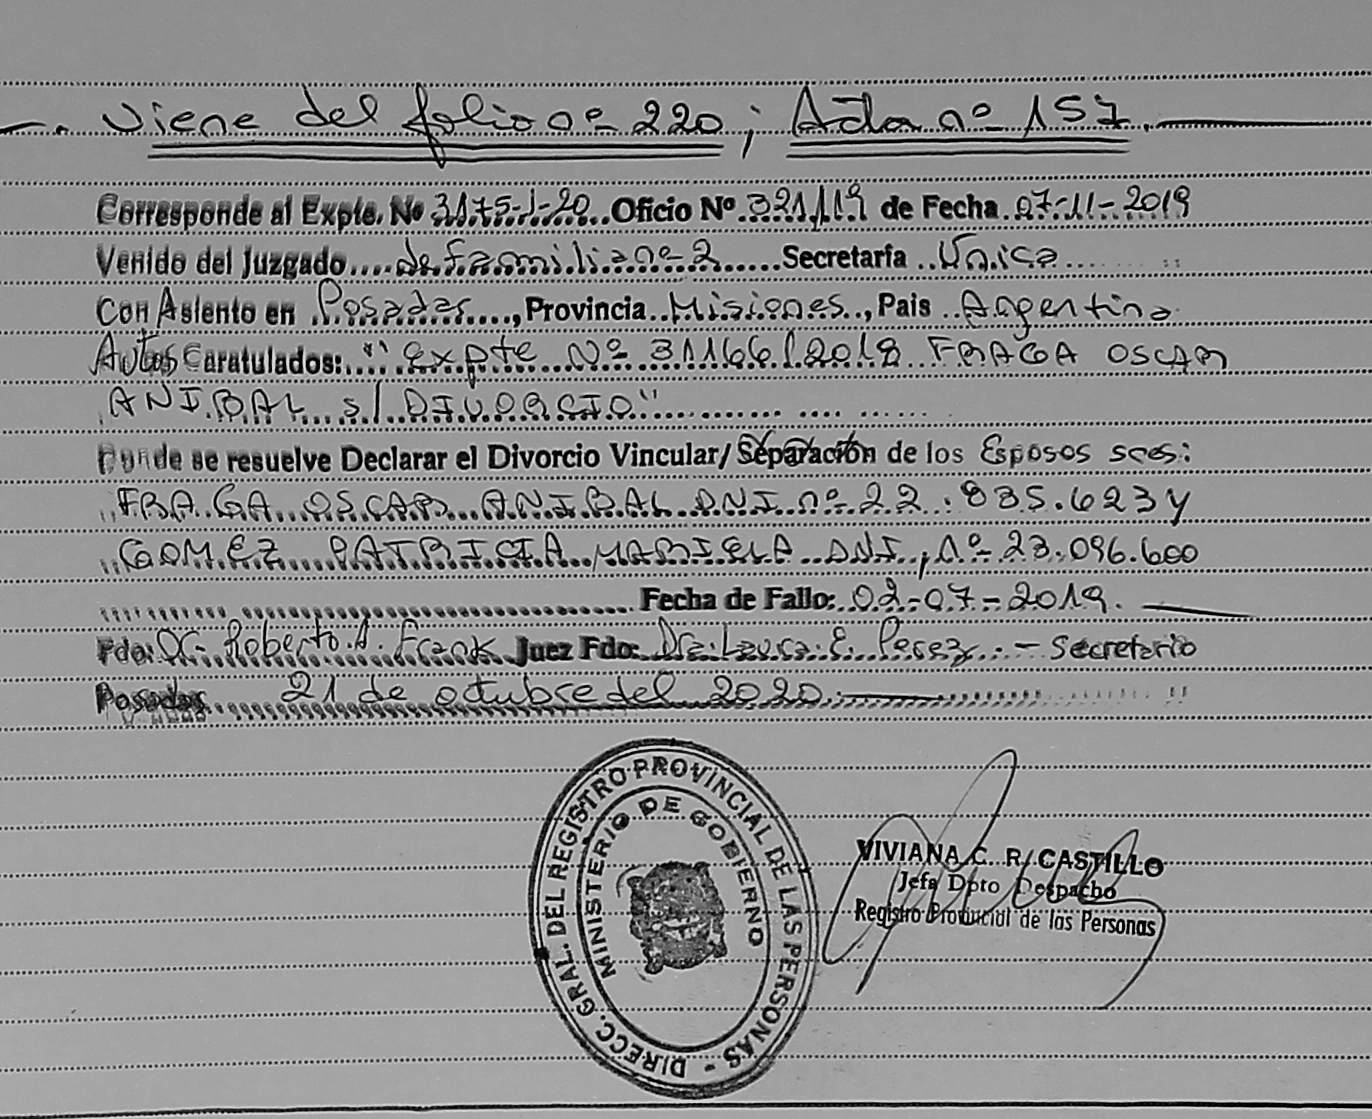 Viene del folio nº 220; Acta nº 157.
Corresponde al Expte. Nº 3175-J-20 Oficio Nº 321/19 de Fecha 07-11-2019
Venido del Juzgado de familia nº 2 Secretaría Única
Con Asiento en Posadas, Provincia Misiones, Pais Argentina
Autos Caratulados: "Expte Nº 31166/2018 FRAGA OSCAR
ANIBAL s/ DIVORCIO"
Donde se resuelve Declarar el Divorcio Vincular/ Separación de los Esposos sres:
FRAGA OSCAR ANIBAL DNI nº 22.835.623 y
GOMEZ PATRICIA MARIELA DNI, nº 23.096.600
Fecha de Fallo: 02-07-2019.
Fdo: Dr. Roberto A. Frank Juez Fdo: Dra. Laura E. Perez. - Secretario
Posadas 21 de octubre del 2020.
DIRECC. GRAL. DEL REGISTRO PROVINCIAL DE LAS PERSONAS -
MINISTERIO DE GOBIERNO
VIVIANA C. R. CASTILLO
Jefa Dpto Despacho
Registro Provincial de las Personas